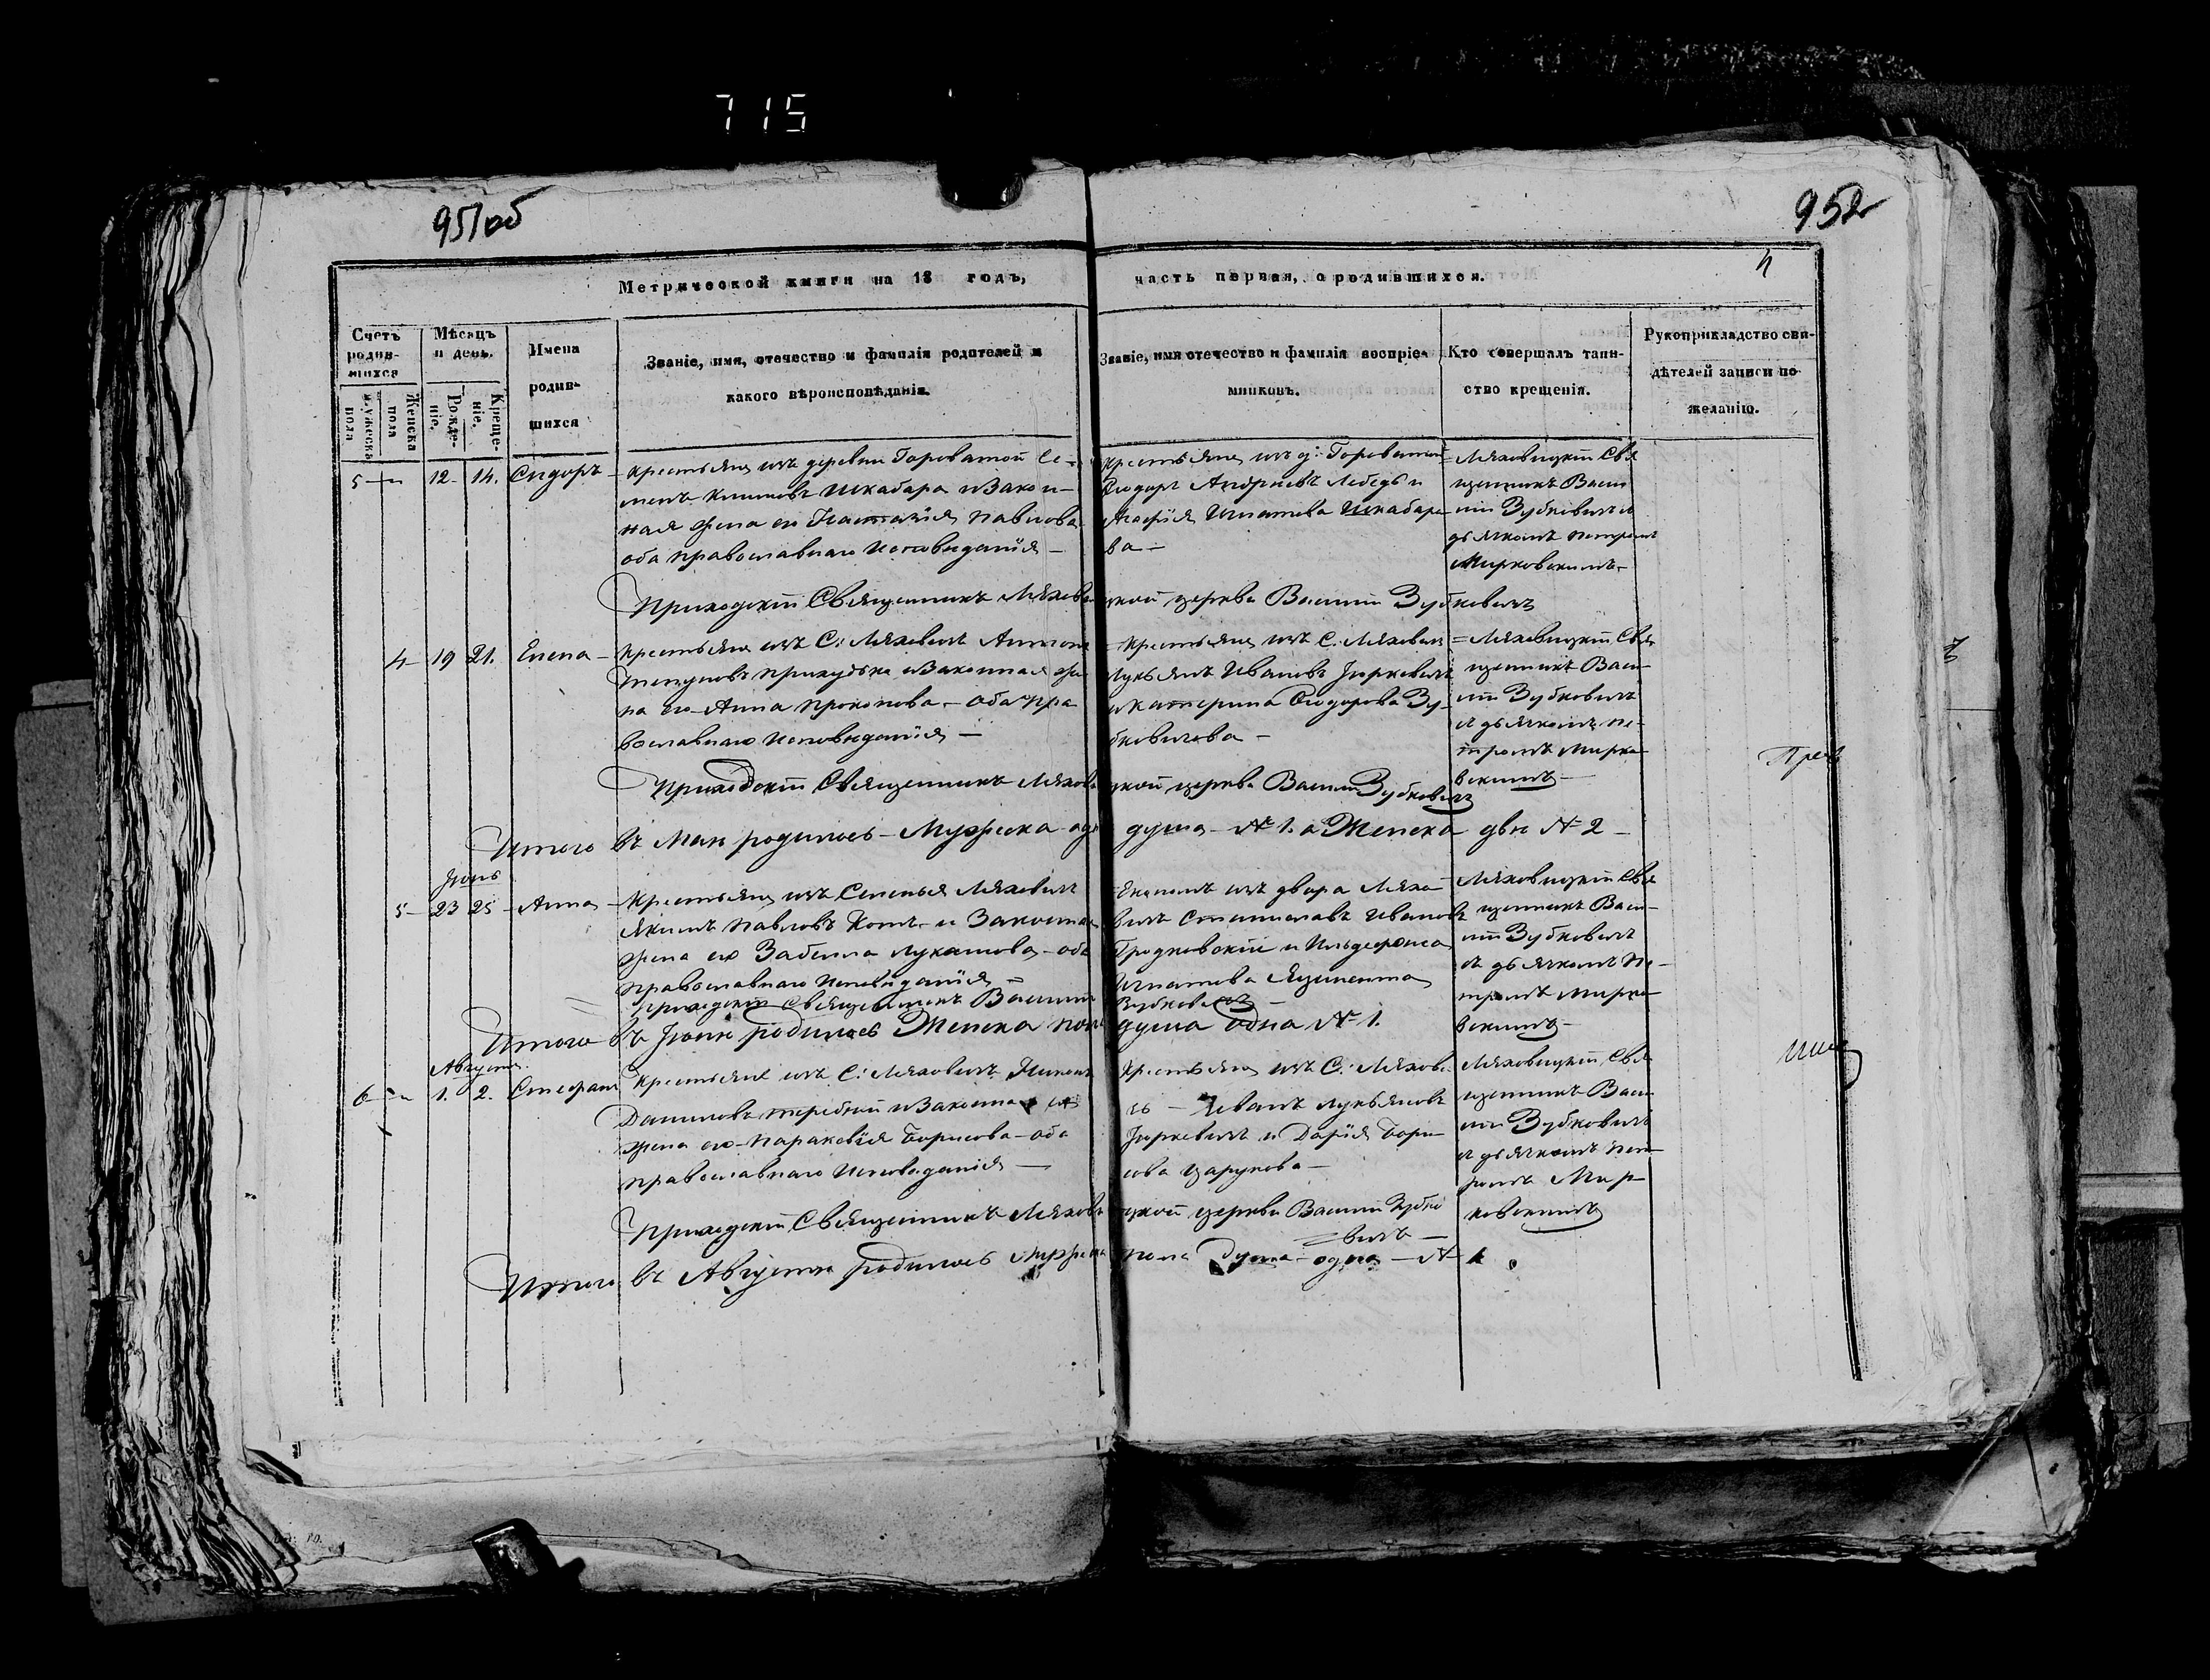 715
951об
952
4
Метрической книги на 18 годъ, часть первая, о родившихся.
Счетъ родив-шихся
Мѣсяцъ и день.
Имена родив-шихся
Званіе, имя, отечество и фамилія родителей и какого вѣроисповѣданія.
Званіе, имя отечество и фамилія воспріе-мниковъ.
Кто совершалъ таин-ство крещенія.
Рукоприкладство сви-дѣтелей записи по желанію.
мужеска пола
Женска пола
Рожде-ніе.
Креще-ніе.
5 — „ 12. 14. Сидоръ
Крестьяне изъ деревни Горватой Се-
менъ Климовъ Шкабара и Закон-
ная жена его Настасія Павлова
оба православнаго Исповѣданія —
Крестьяне изъ д: Горватой
Ѳіодоръ Андреевъ Лебедь и
Агафія Игнатева Шкабаро
ва —
Ляховицкій Свя
щенникъ Васи
лій Зубковичъ и
дьячкомъ Петромъ
Мирковскимъ
Приходскій Священникъ Ляховицкой церкви Василій Зубковичъ
4 — 19 21. Елена
Крестьяне изъ С: Ляховичъ Антонъ
Прихудька и Законная же
на его Анна Прокопова — оба пра
вославнаго Исповѣданія —
Крестьяне изъ С: Ляховичъ
Лукьянъ Ивановъ Юркевичъ
и Катерина Ѳіодорова Зу-
бковичова —
Ляховицкій Свя
щенникъ Васи-
лій Зубковичъ
съ дьячкомъ Пе-
тромъ Мирко
вскимъ —
Приходскій Священникъ Ляховицкой церкви Василій Зубковичъ
Итого въ Маи родилось — Мужеска одна душа — № 1. а Женска двѣ № 2 —
Іюнь
5 — 23 25 — Анна
Крестьяне изъ Селенья Ляховичъ
Якимъ Павловъ Котъ и Законная
жена его Забелла Лукашова — оба
православнаго Исповѣданія —
Экономъ изъ двора Ляхо-
вичъ Станиславъ Ивановъ
Гродковскій и Ильдефонса
Игнатева
Ляховицкій Свя
щенникъ Васи-
лій Зубковичъ
съ дьячкомъ Пе-
тромъ Мирко
вскимъ —
Приходскій Священникъ Василій Зубковичъ —
Итого въ Іюнѣ родилось Женска пола душа одна № 1.
Августъ.
6 — „ 1. 2. Стефанъ
Крестьяне изъ С: Ляховичъ
Даниловъ Теребей и Законная
жена его Параковія Борисова — оба
православнаго Исповѣданія —
Крестьяне изъ С: Ляхови
чъ — Иванъ Лукьяновъ
Юркевичъ и Дарія Бори-
сова Царукова —
Ляховицкій Свя
щенникъ Васи
лій Зубковичъ
съ дьячкомъ Пет
ромъ Мир
ковскимъ
Приходскій Священникъ Ляховицкой церкви Василій Зубко
вичъ —
Итого въ Августѣ родилось Мужеска пола Душа — одна — № 1